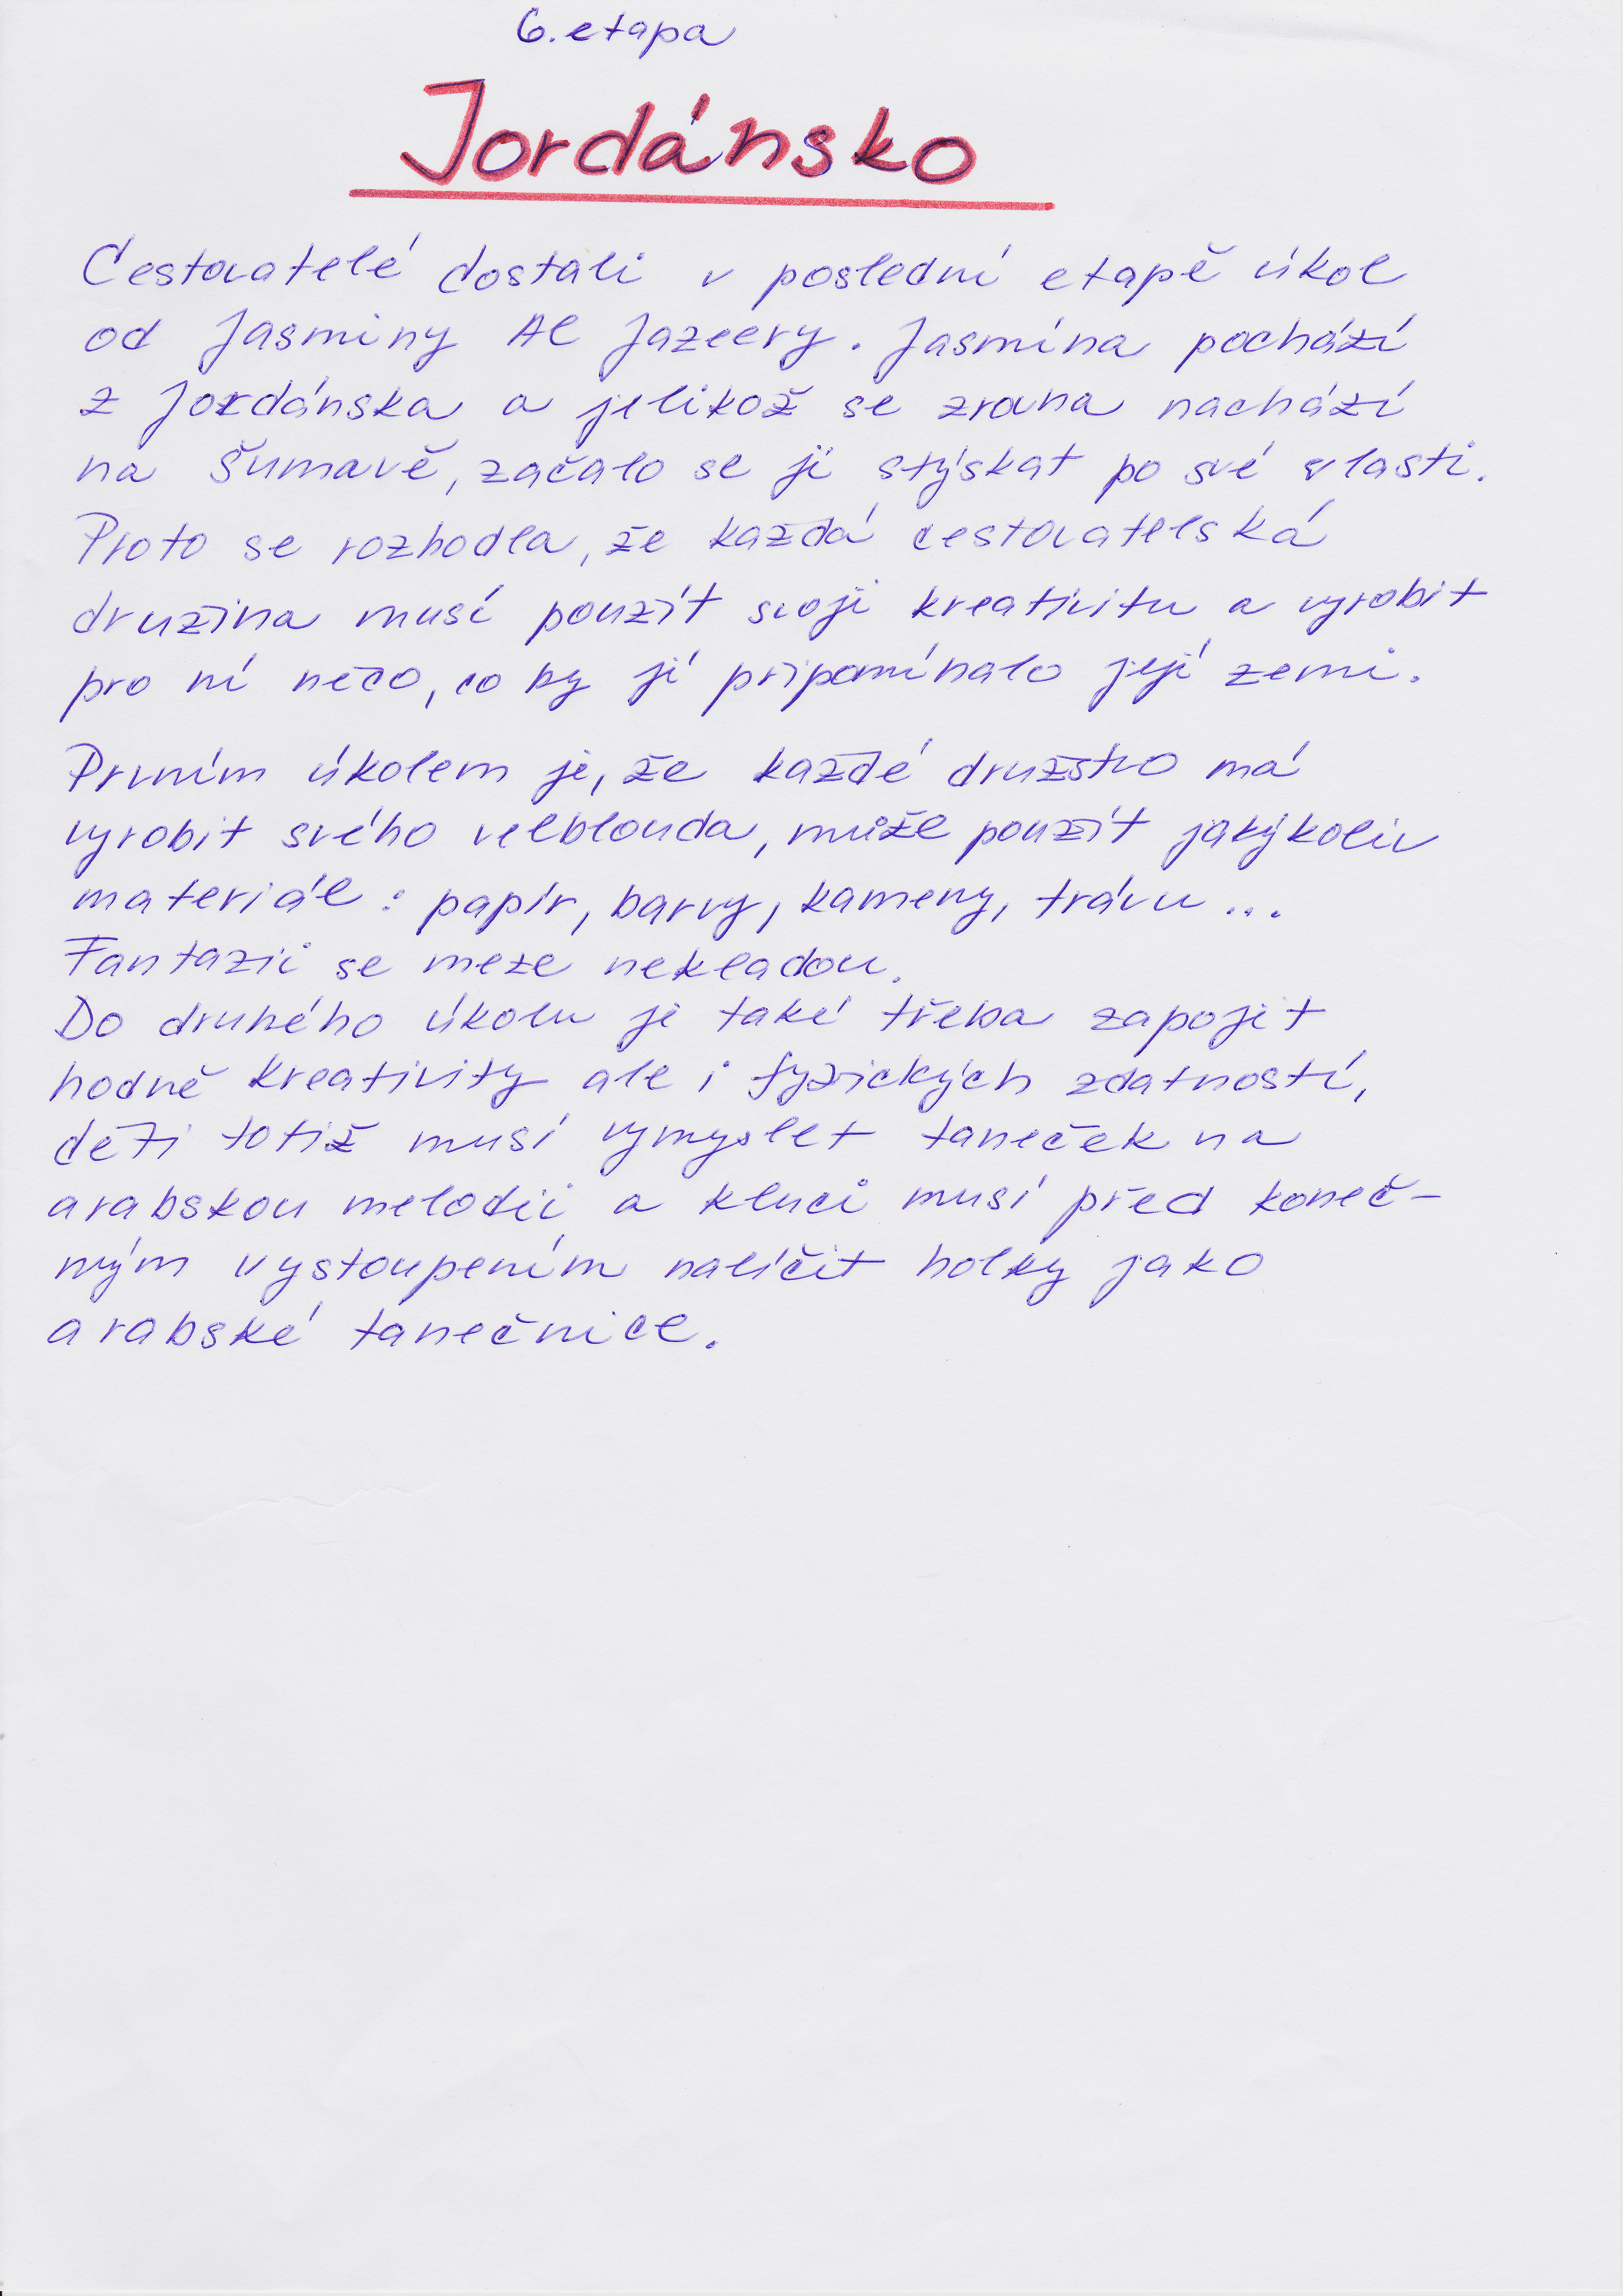 6. etapa
Jordánsko
Cestovatelé dostali v poslední etapě úkol
od Jasminy Al Jazeery. Jasmína pochází
z Jordánska a jelikož se zrovna nachází
na Šumavě, začalo se jí stýskat po své vlasti.
Proto se rozhodla, že každá cestovatelská
družina musí použít svoji kreativitu a vyrobit
pro ní něco, co by jí připomínalo její zemi.
Prvním úkolem je, že každé družstvo má
vyrobit svého velblouda, může použít jakýkoliv
materiál: papír, barvy, kameny, trávu...
Fantazii se meze nekladou.
Do druhého úkolu je také třeba zapojit
hodně kreativity ale i fyzických zdatností,
děti totiž musí vymyslet taneček na
arabskou melodii a kluci musí před koneč-
ným vystoupením nalíčit holky jako
arabské tanečnice.